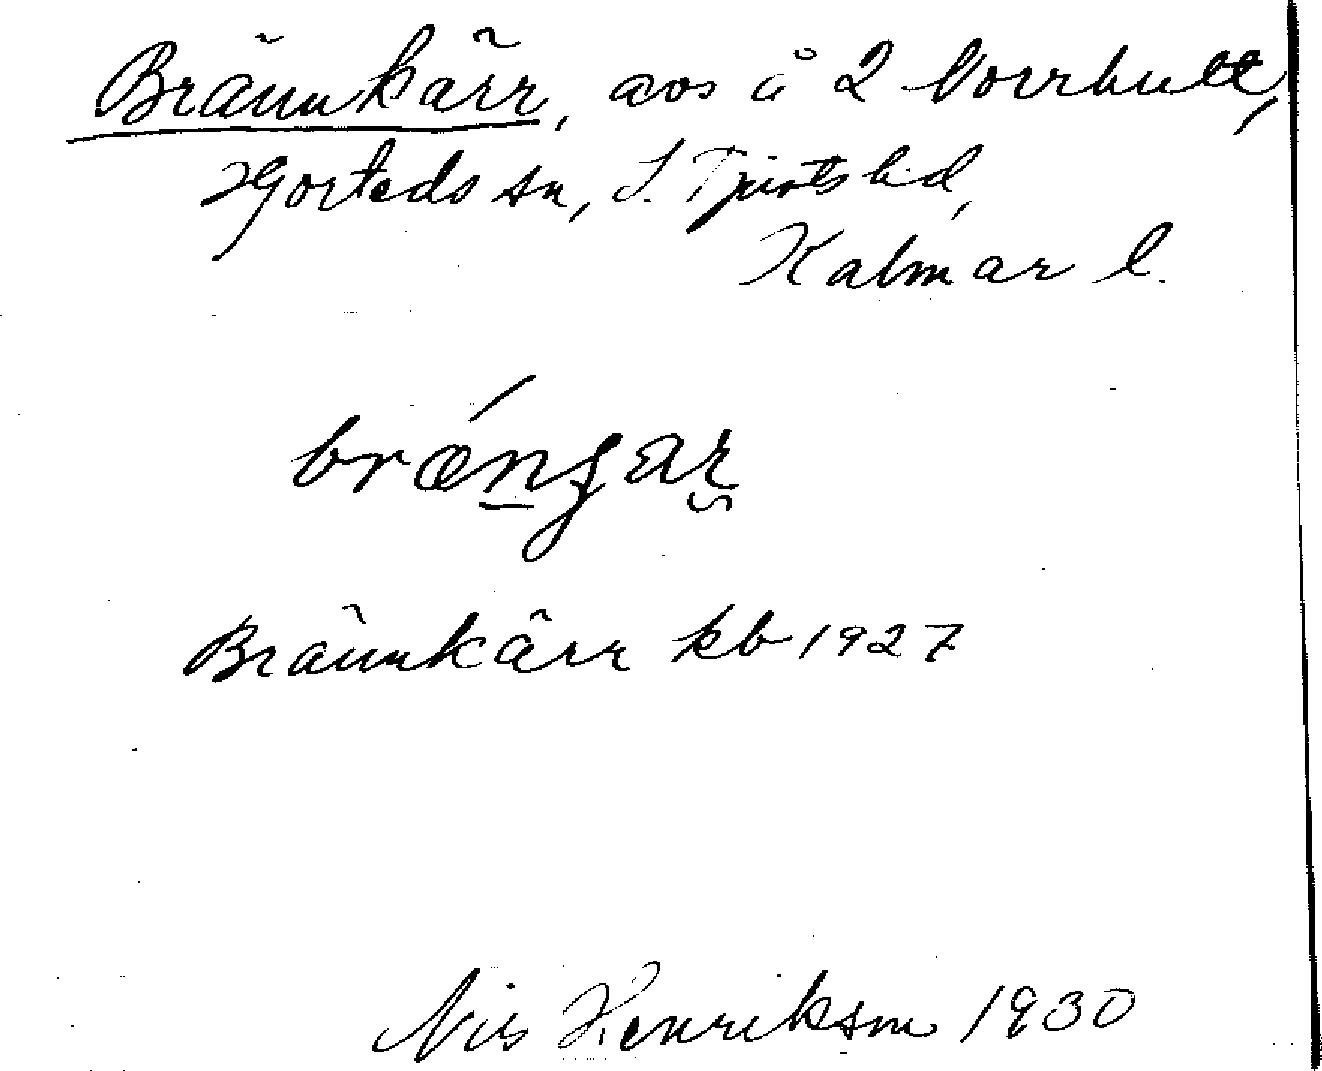 Brännkärr, avs å 2 Norrhult,
Hjorteds sn, S. Tjusts hd,
Kalmar l.
brǽn̠ꞔar̯
Brännkärr kb 1927
Nils Henrikson 1930